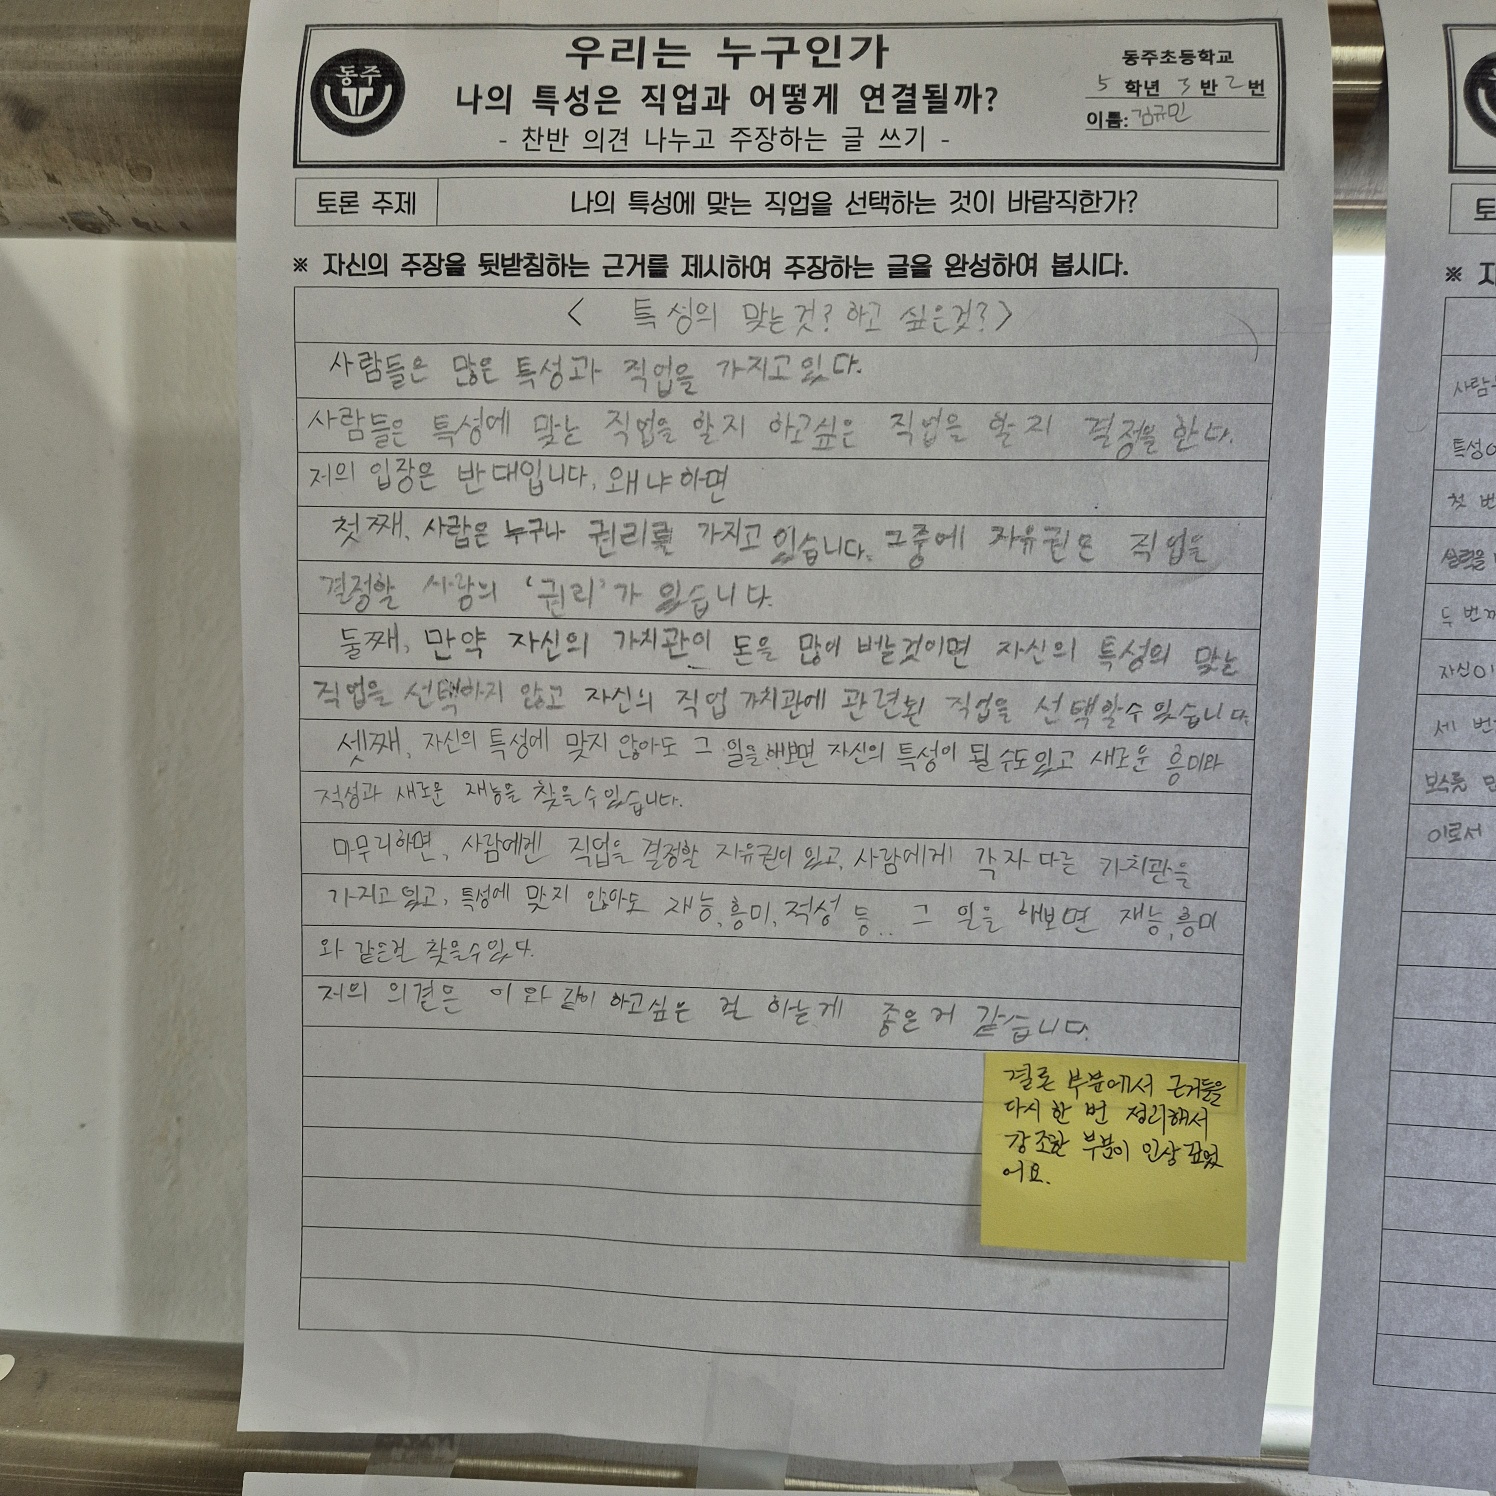 동주
우리는 누구인가
나의 특성은 직업과 어떻게 연결될까?
- 찬반 의견 나누고 주장하는 글 쓰기 -
동주초등학교
5 학년 3 반 2 번
이름: 김규민
토론 주제
나의 특성에 맞는 직업을 선택하는 것이 바람직한가?
※ 자신의 주장을 뒷받침하는 근거를 제시하여 주장하는 글을 완성하여 봅시다.
< 특성의 맞는것? 하고 싶은것? >
사람들은 많은 특성과 직업을 가지고있다.
사람들은 특성에 맞는 직업을 할지 하고싶은 직업을 할지 결정을 한다.
저의 입장은 반대입니다. 왜냐하면
첫째, 사람은 누구나 권리를 가지고 있습니다. 그중에 자유권은 직업을
결정할 사람의 '권리'가 있습니다.
둘째, 만약 자신의 가치관이 돈을 많이 버는것이면 자신의 특성의 맞는
직업을 선택하지 않고 자신의 직업 가치관에 관련된 직업을 선택할수 있습니다.
셋째, 자신의 특성에 맞지 않아도 그 일을 해보면 자신의 특성이 될 수도있고 새로운 흥미와
적성과 새로운 재능을 찾을수있습니다.
마무리하면, 사람에겐 직업을 결정할 자유권이 있고, 사람에게 각자 다른 가치관을
가지고있고, 특성에 맞지 않아도 재능, 흥미, 적성 등... 그 일을 해보면 재능, 흥미
와 같은걸 찾을수있다.
저의 의견은 이와 같이 하고싶은 걸 하는게 좋은거 같습니다.
결론 부분에서 근거들을
다시 한 번 정리해서
강조한 부분이 인상 깊었
어요.
토
※ 자
사람
특성에
첫 번
실력을
두 번째
자신이
세 번
보수를
이로서